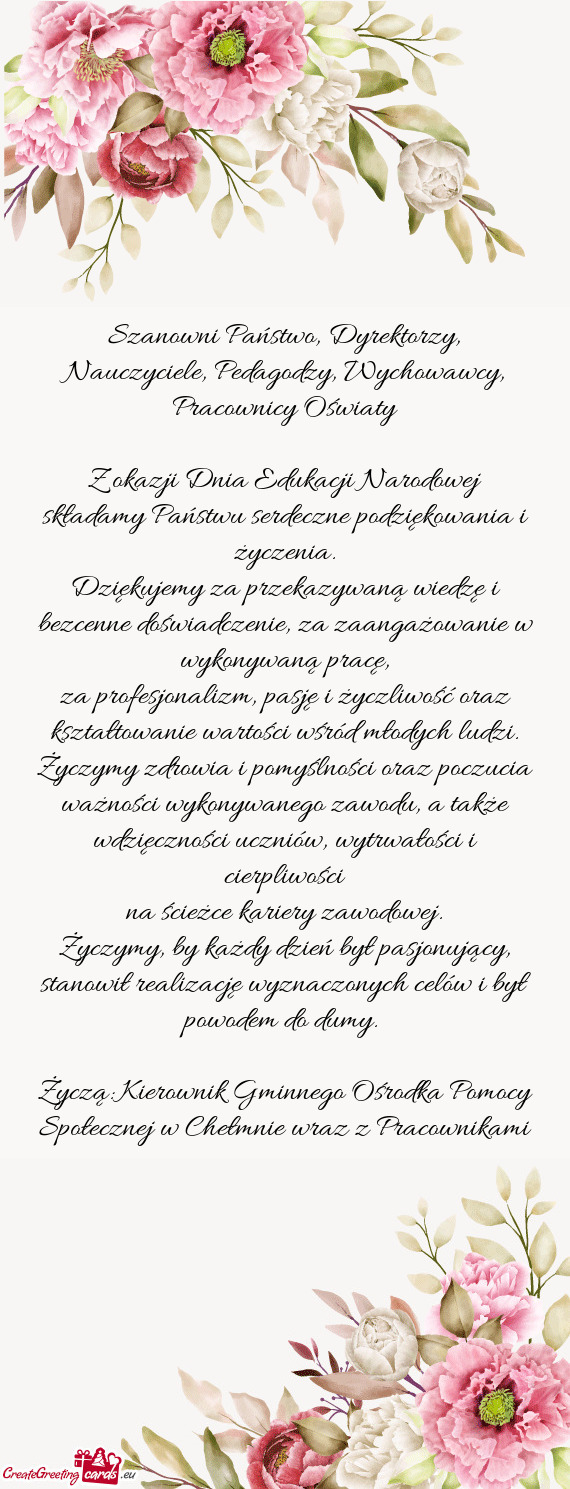 Szanowni Państwo, Dyrektorzy,
Nauczyciele, Pedagodzy, Wychowawcy,
Pracownicy Oświaty
Z okazji Dnia Edukacji Narodowej
składamy Państwu serdeczne podziękowania i
życzenia.
Dziękujemy za przekazywaną wiedzę i
bezcenne doświadczenie, za zaangażowanie w
wykonywaną pracę,
za profesjonalizm, pasję i życzliwość oraz
kształtowanie wartości wśród młodych ludzi.
Życzymy zdrowia i pomyślności oraz poczucia
ważności wykonywanego zawodu, a także
wdzięczności uczniów, wytrwałości i
cierpliwości
na ścieżce kariery zawodowej.
Życzymy, by każdy dzień był pasjonujący,
stanowił realizację wyznaczonych celów i był
powodem do dumy.
Życzą: Kierownik Gminnego Ośrodka Pomocy
Społecznej w Chełmnie wraz z Pracownikami
CreateGreeting cards .eu